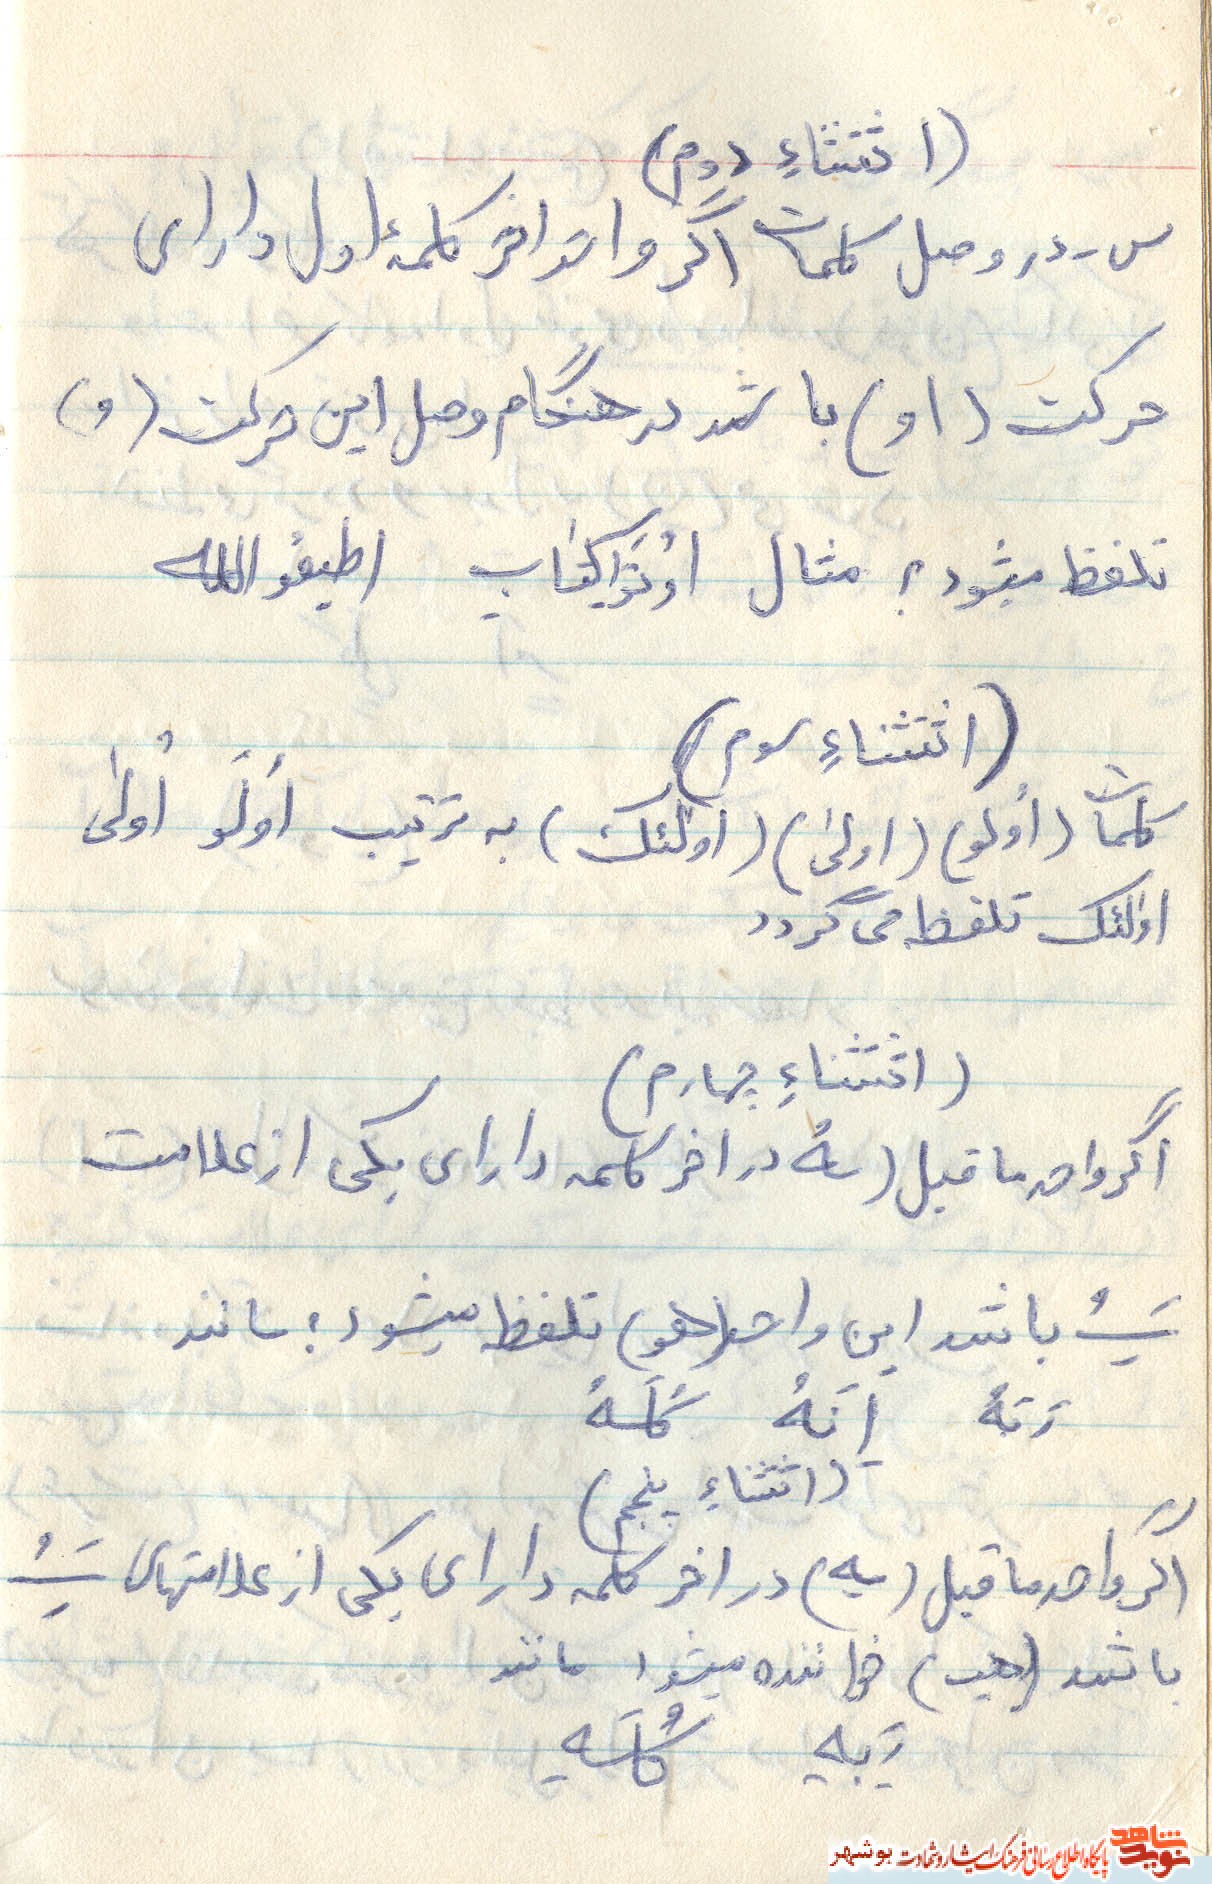 (اثتثناءِ دوم)
س - در وصل کلمات اگر واحد اخر کلمهٔ اول دارای
حرکت (او) باشد در هنگام وصل این حرکت (و)
تلفظ میشود؟ مثال اوُتوُالکِتاب اطیعُو الله
(اثتثناءِ سوم)
کلمات (اُولو) (اولی) (اولئک) به ترتیب اُولَو اُولی
اولئک تلفظ می گردد
(اثتثناءِ چهارم)
اگر واحد ماقبل (ـهُ در اخر کلمه دارای یکی از علامت
ـَـِـُ باشد این واحد (هو) تلفظ میشود؛ مانند
رَبَهُ اِنَهُ کُلَهُ
(اثتثناءِ پنجم)
اگر واحد ماقبل (ـهِ) در اخر کلمه دارای یکی از علامتهای ـَـِـُ
باشد (هیـ) خوانده میشود مانند
رَبِهِ
نوید شاهد
پایگاه اطلاع رسانی فرهنگ ایثار و شهادت بوشهر